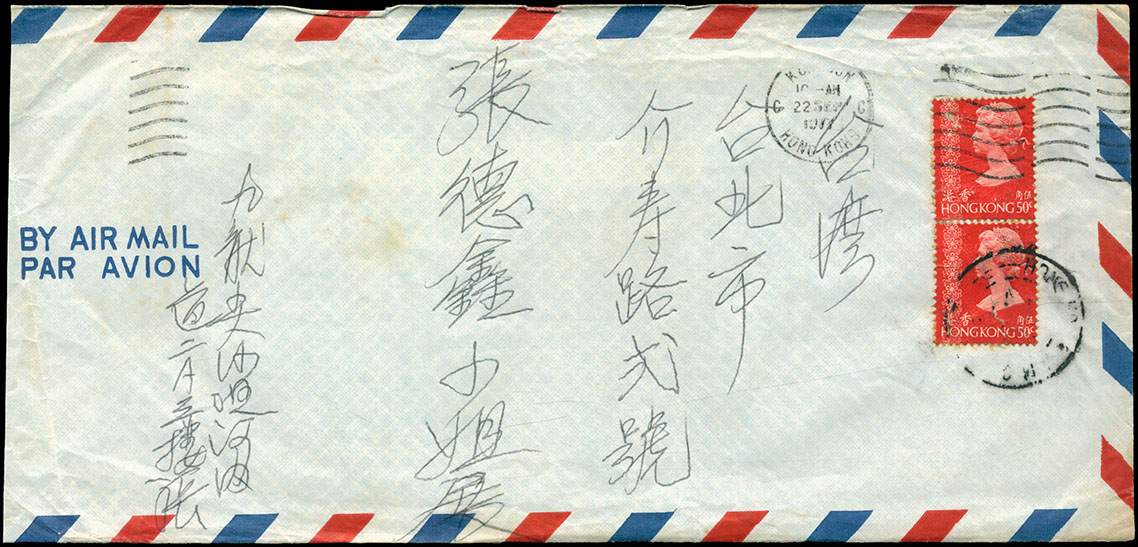 台湾
台北市
介寿路弍號
張德鑫小姐展
九龍尖沙咀河内
道三樓張
BY AIR MAIL
PAR AVION
10 - AM
C 22 SEP C
HONG KONG
港香 角伍
HONG KONG 50c
港香 角伍
HONG KONG 50c
HONG KO